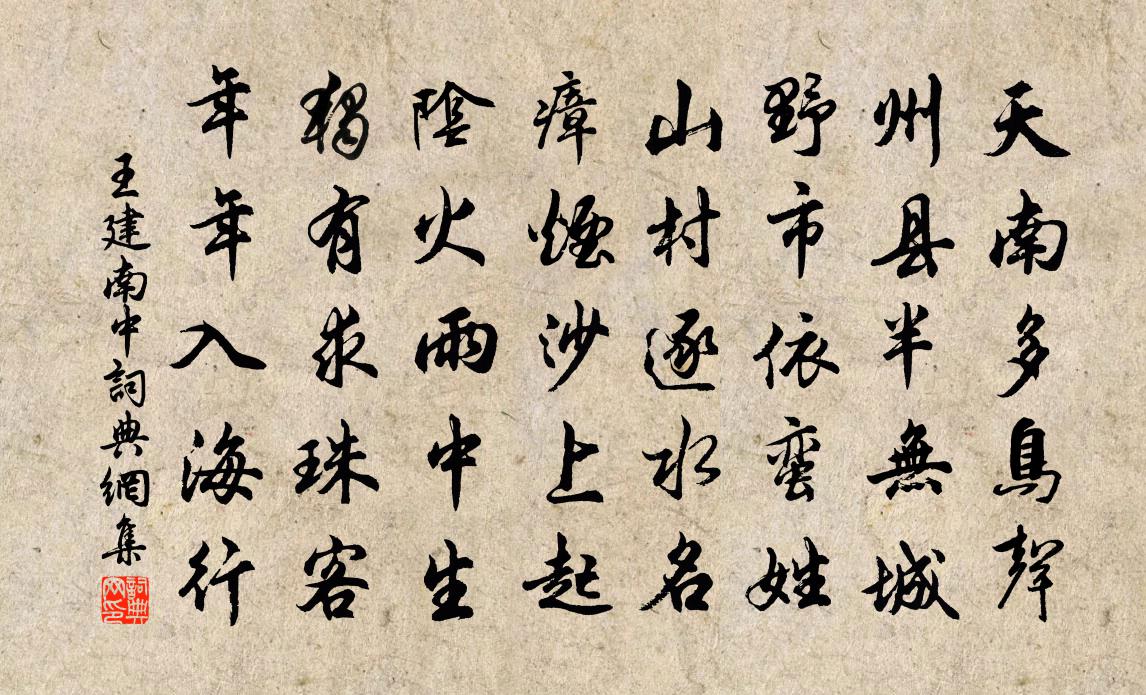 天南多鳥聲
州县半無城
野市依蛮姓
山村逐水名
瘴煙沙上起
陰火雨中生
獨有求珠客
年年入海行
王建南中詞典網集
詞典网印